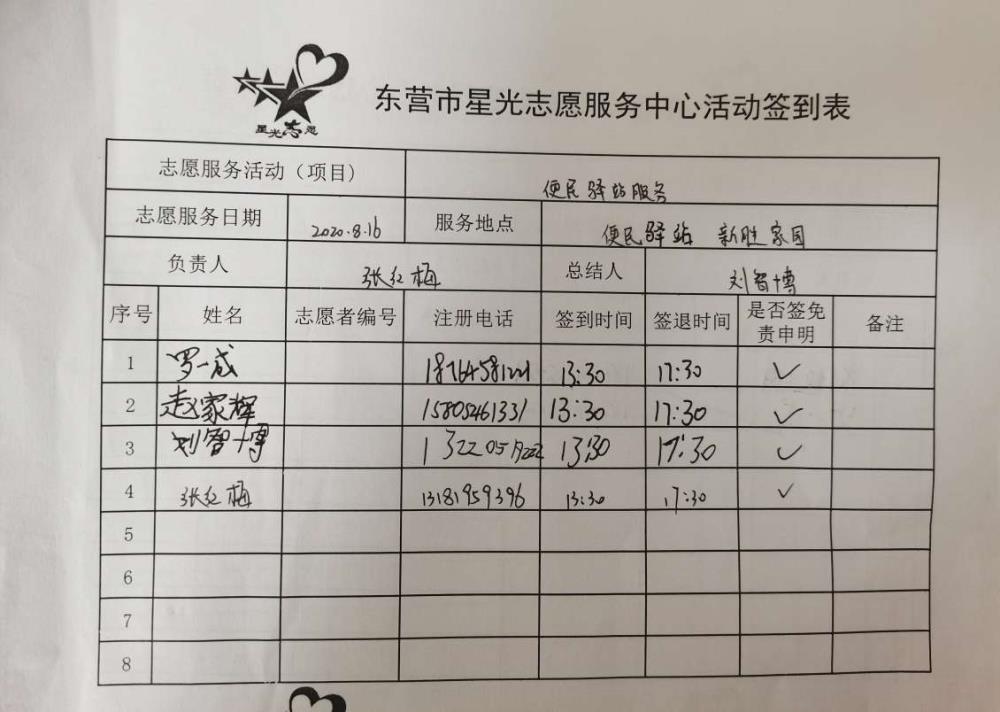 星光志愿
东营市星光志愿服务中心活动签到表
志愿服务活动（项目） 便民驿站服务
志愿服务日期 2020.8.16 服务地点 便民驿站 新胜家园
负责人 张红梅 总结人 刘智博
序号 姓名 志愿者编号 注册电话 签到时间 签退时间 是否签免责申明 备注
1 罗一成 13:30 17:30 ✓
2 赵家辉 15805461331 13:30 17:30 ✓
3 刘智博 13:30 17:30 ✓
4 张红梅 13181959396 13:30 17:30 ✓
5
6
7
8